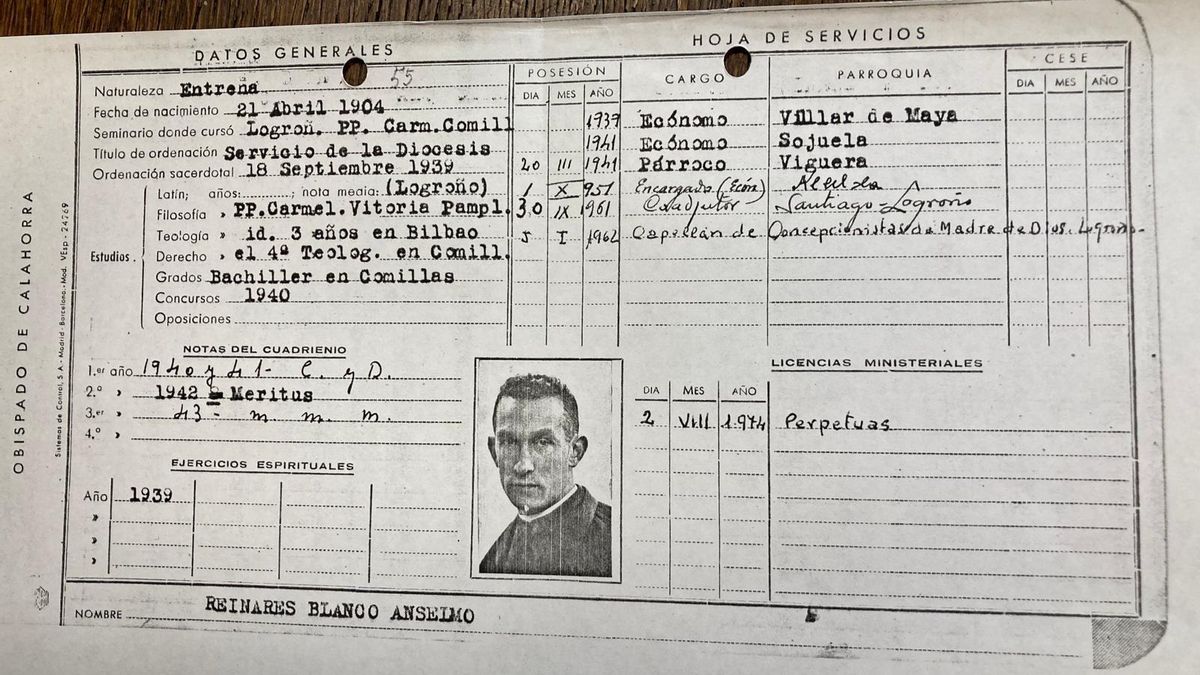 DATOS GENERALES
Naturaleza Entrena 55
Fecha de nacimiento 21 Abril 1904
Seminario donde cursó Logroñ. PP. Carm.Comill
Título de ordenación Servicio de la Diocesis
Ordenación sacerdotal 18 Septiembre 1939
Estudios.
Latín; años: ; nota media: (Logroño)
Filosofía » PP.Carmel.Vitoria Pampl.
Teología » id. 3 años en Bilbao
Derecho » el 4º Teolog. en Comill.
Grados Bachiller en Comillas
Concursos 1940
Oposiciones
HOJA DE SERVICIOS
POSESIÓN CARGO PARROQUIA CESE
DIA MES AÑO DIA MES AÑO
1939 Ecónomo Villar de Maya
1941 Ecónomo Sojuela
20 III 1941 Párroco Viguera
1 X 951 Encargado (Ecón)
30 IX 1961 Coadjutor Santiago-Logroño
5 I 1962 Capellán de Concepcionistas de Madre de Dios. Logroño-
NOTAS DEL CUADRIENIO
1.er año 1940 y 41- C. y D.
2.º » 1942 Meritus
3.er » 43 - m m m.
4.º »
EJERCICIOS ESPIRITUALES
Año 1939
»
»
»
LICENCIAS MINISTERIALES
DIA MES AÑO
2 VIII 1.974 Perpetuas
NOMBRE REINARES BLANCO ANSELMO
OBISPADO DE CALAHORRA
Sistemas de Control, S.A.- Madrid - Barcelona.- Mod. VEsp - 24769